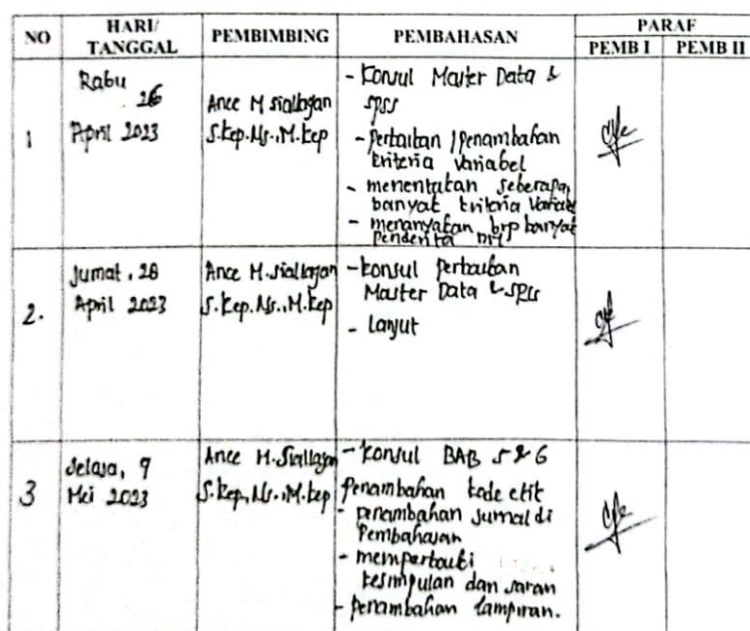 NO HARI/ TANGGAL PEMBIMBING PEMBAHASAN PARAF
PEMB I PEMB II
1
Rabu
26
April 2023
Ance M Siallagan
S.Kep.Ns.,M.Kep
- Konsul Master Data &
SPSS
- perbaikan / penambahan
kriteria Variabel
- menentukan seberapa
banyak kriteria Variabel
- menanyakan brp banyak
penderita DM
2.
Jumat, 28
April 2023
Ance M. Siallagan
S.Kep.Ns.,M.Kep
- konsul perbaikan
Master Data & SPSS
- Lanjut
3
Selasa, 9
Mei 2023
Ance M. Siallagan
S.Kep,Ns.,M.Kep
- konsul BAB 5 & 6
penambahan kode etik
- penambahan jurnal di
Pembahasan
- memperbaiki
kesimpulan dan saran
- penambahan lampiran.